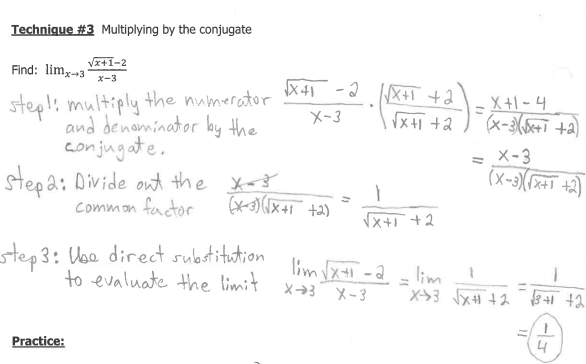 Technique #3 Multiplying by the conjugate
Find: lim x→3 (√x+1−2)/(x−3)
step 1: multiply the numerator and denominator by the conjugate.
(√x+1 − 2)/(x−3) · ((√x+1 + 2)/(√x+1 + 2)) = (x+1−4)/((x−3)(√x+1 + 2))
= (x−3)/((x−3)(√x+1 + 2))
step 2: Divide out the common factor
(x−3)/((x−3)(√x+1 + 2)) = 1/(√x+1 + 2)
step 3: Use direct substitution to evaluate the limit
lim x→3 (√x+1 − 2)/(x−3) = lim x→3 1/(√x+1 + 2) = 1/(√3+1 + 2)
= 1/4
Practice: